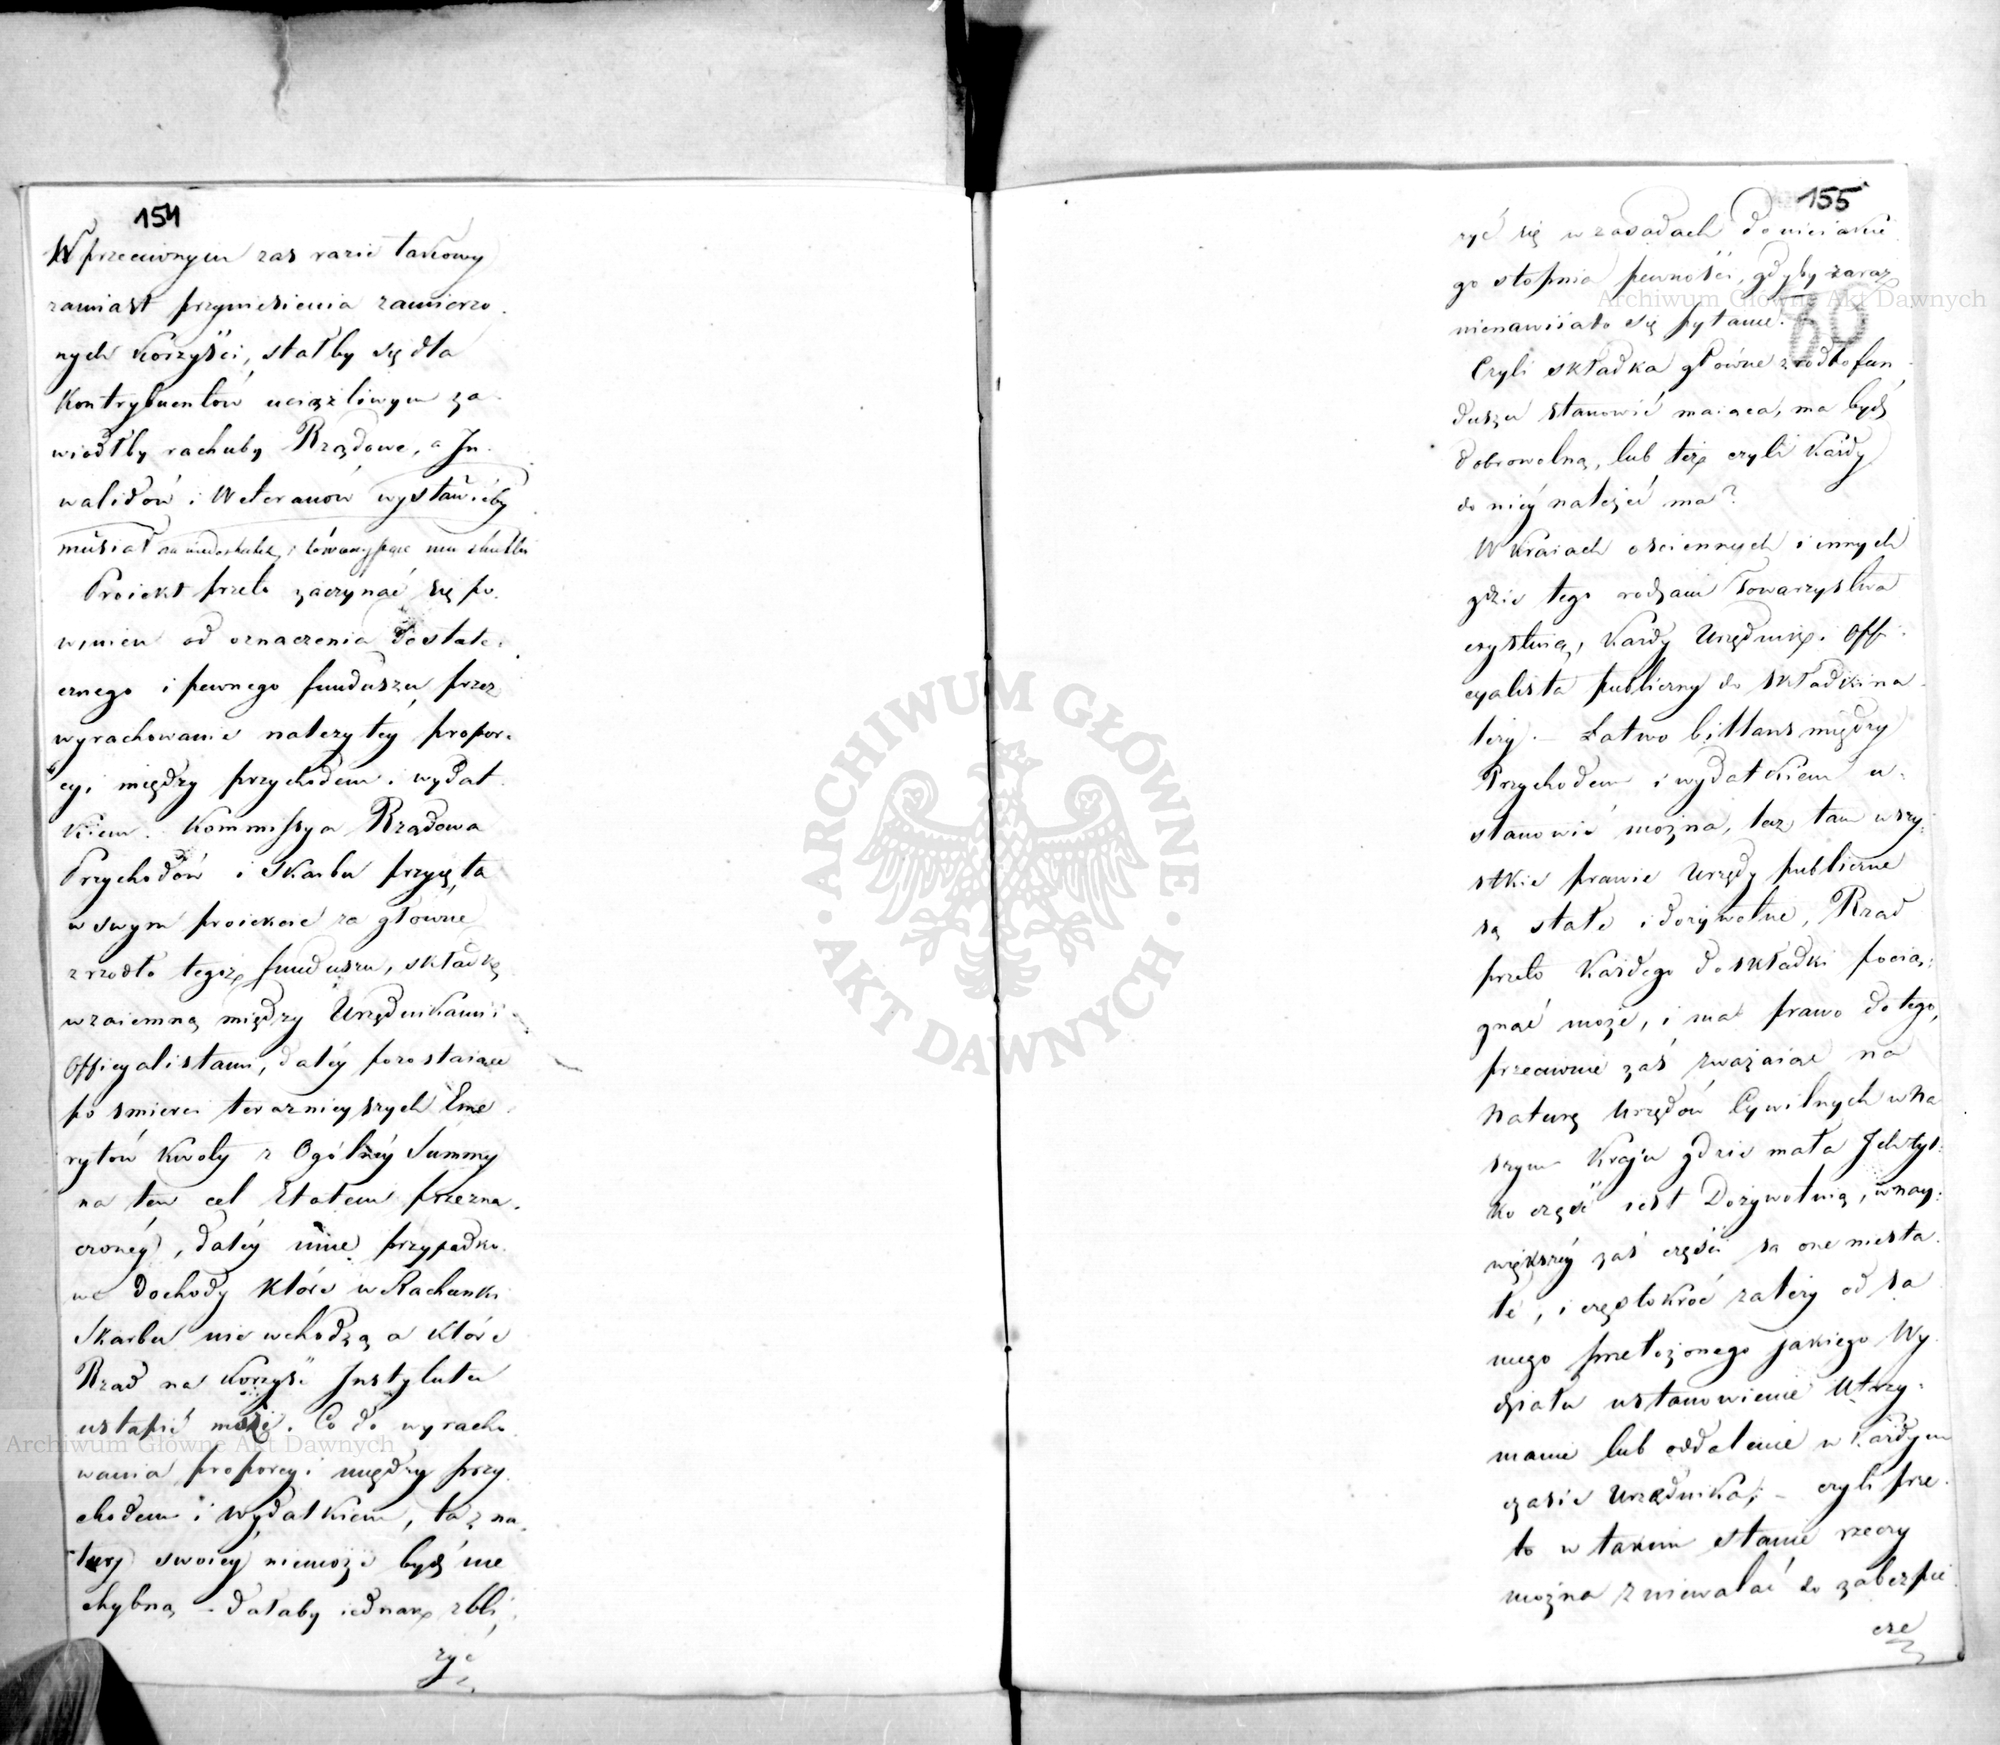 154
W przeciwnym zas razie takowy
zamiast przyniesienia zamierzo.
nych korzyści, stałby się dla
Kontrybuentów uciążliwym za-
wiodłby rachuby Rządowe, a In-
walidów i Weteranów wystawićby
musiał na niedostatek, i towarzyszące mu skutki
Proiekt przeto zaczynać się po.
winien od oznaczenia dostate.
cznego i pewnego funduszu, przez
wyrachowanie należytéy propor.
cyi między przychodem i wydat.
kiem. Kommissya Rządowa
Przychodów i Skarbu przyięła
w swym proiekcie za główne
zrzodło tegoż funduszu, składkę
wzaiemną między Urzędnikami i
Officyalistami, daléy pozostaiące
po smierci teraznieyszych Eme
rytów kwoty z Ogólnéy Summy
na ten cel Etatem przezna.
czonéy, daléy inne przypadko.
we dochody które w Rachunki
Skarbu nie wchodzą a które
Rząd na korzyść Instytutu
ustąpić może. Co do wyracho
wania proporcyi między przy.
chodem i wydatkiem, ta z na.
tury swoiéy niemoże bydź nie
chybną – dałaby iednak zbli,
żyć
155
żyć się w zasadach do nieiakie
go stopnia pewności, gdyby zaraz
nienawiiało się pytanie.
80
Czyli składka główne zrodło fun-
duszu stanowić maiąca, ma bydź
dobrowolną, lub też czyli każdy
do niéy należeć ma?
W kraiach osciennych i innych
gdzie tego rodzaiu Towarzystwa
exystuią, każdy Urzędnik i Offi-
cyalista publiczny do składki na-
leży. – Łatwo billans między
Przychodem i wydatkiem u-
stanowić można, lecz tam wszy-
stkie prawie Urzędy publiczne
są stałe i dożywotne, Rząd
przeto każdego do składki pocią-
gnąć może, i ma prawo do tego,
przeciwnie zaś zważaiąc na
Naturę Urzędów Cywilnych w na
szym Kraju gdzie mała Ich tyl-
ko część iest Dożywotnią, w nay-
większéy zaś części są one niesta.
łe, i częstokroć zależy od sa
mego przełożonego jakiego Wy.
działu ustanowienie Utrzy-
manie lub oddalenie w każdym
czasie Urzędnika; – czyli prze.
to w takim stanie rzeczy
można zniewalać do zabezpie
cze